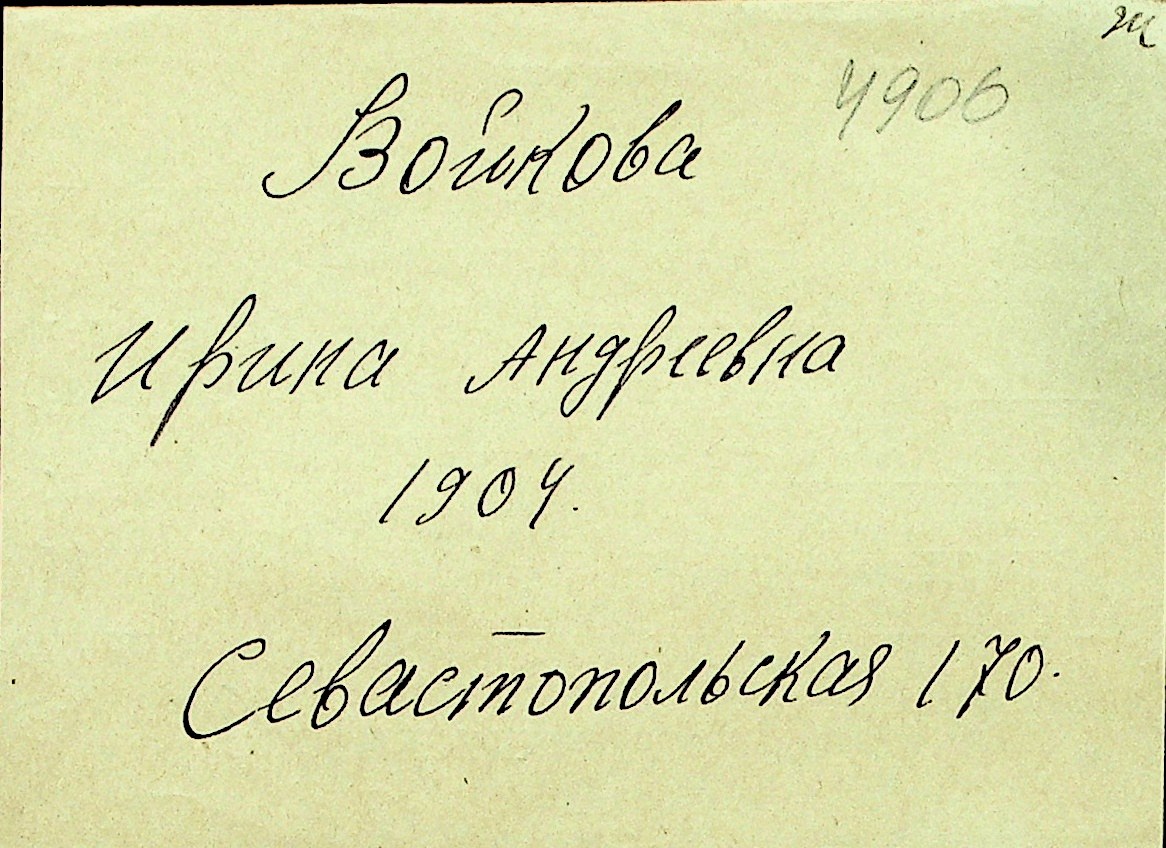 ж
4906
Войкова
Ирина Андреевна
1904.
Севастопольская 170.